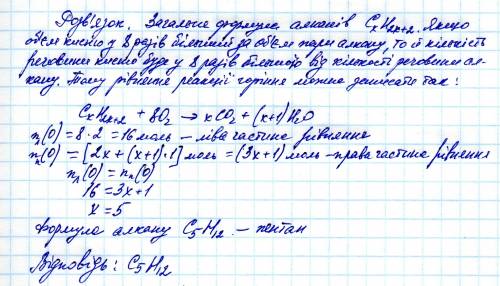 Розв'язок. Загальна формула алканів CxH2x+2. Якщо
об'єм кисню у 8 разів більший за об'єм пари алкану, то й кількість
речовини кисню буде у 8 разів більшою від кількості речовини ал-
кану. Тому рівняння реакції горіння можна записати так:
CxH2x+2 + 8O2 → xCO2 + (x+1)H2O
nл(O) = 8·2 = 16 моль – ліва частина рівняння
nп(O) = [2x + (x+1)·1] моль = (3x+1) моль – права частина рівняння
nл(O) = nп(O)
16 = 3x+1
x = 5
Формула алкану C5H12 – пентан
Відповідь: C5H12